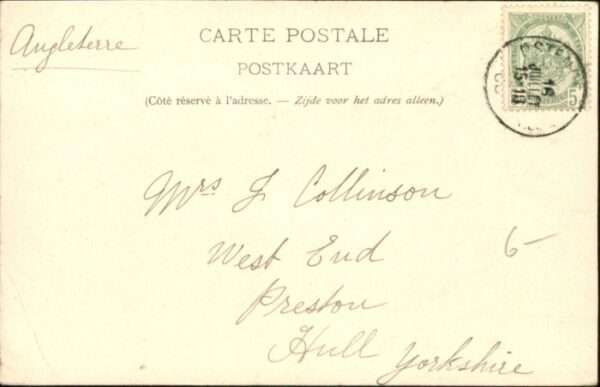 Angleterre
CARTE POSTALE
POSTKAART
(Côté réservé à l'adresse. — Zijde voor het adres alleen.)
16
JUILLET
15-18
5
Mrs J Collinson
West End
Preston
Hull Yorkshire
6-